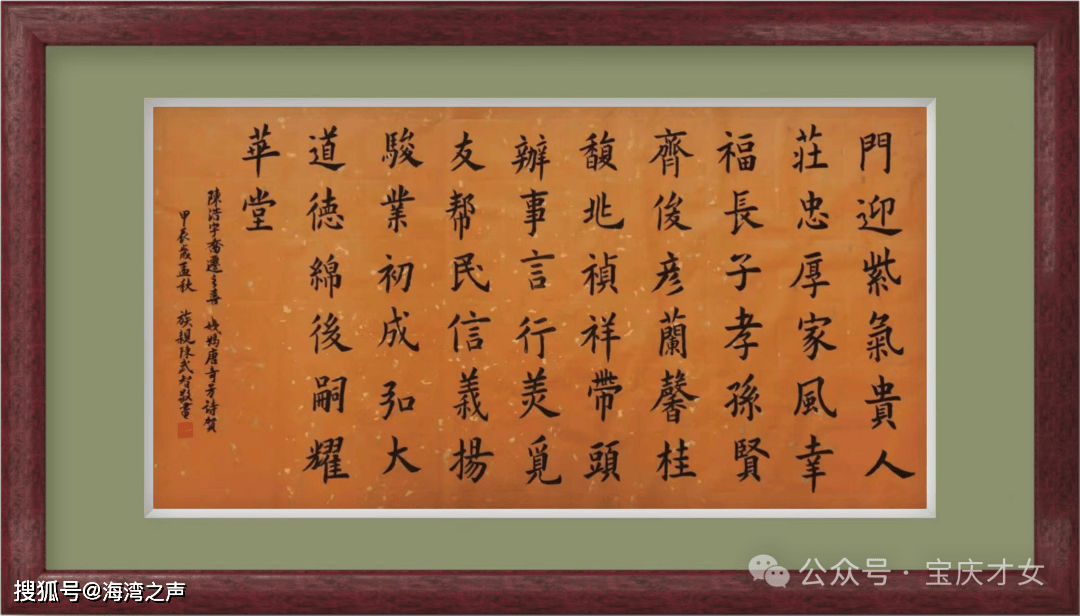 門迎紫氣貴人
莊忠厚家風幸
福長子孝孫賢
齊俊彦蘭馨桂
馥兆禎祥帶頭
辦事言行美覓
友幫民信義揚
駿業初成弘大
道德綿後嗣耀
華堂
陳浩宇喬遷之喜 姨媽唐奇芳詩賀
甲辰歲孟秋 族親陳武敬書
搜狐号@海湾之声
公众号·宝庆才女